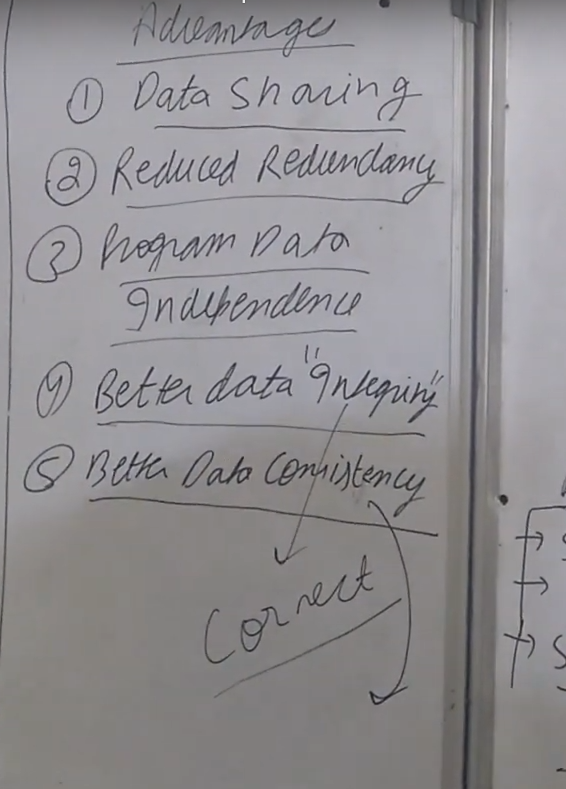 Advantages
① Data Sharing
② Reduced Redundancy
③ Program Data
Independence
④ Better data "Integrity"
⑤ Better Data Consistency
Correct